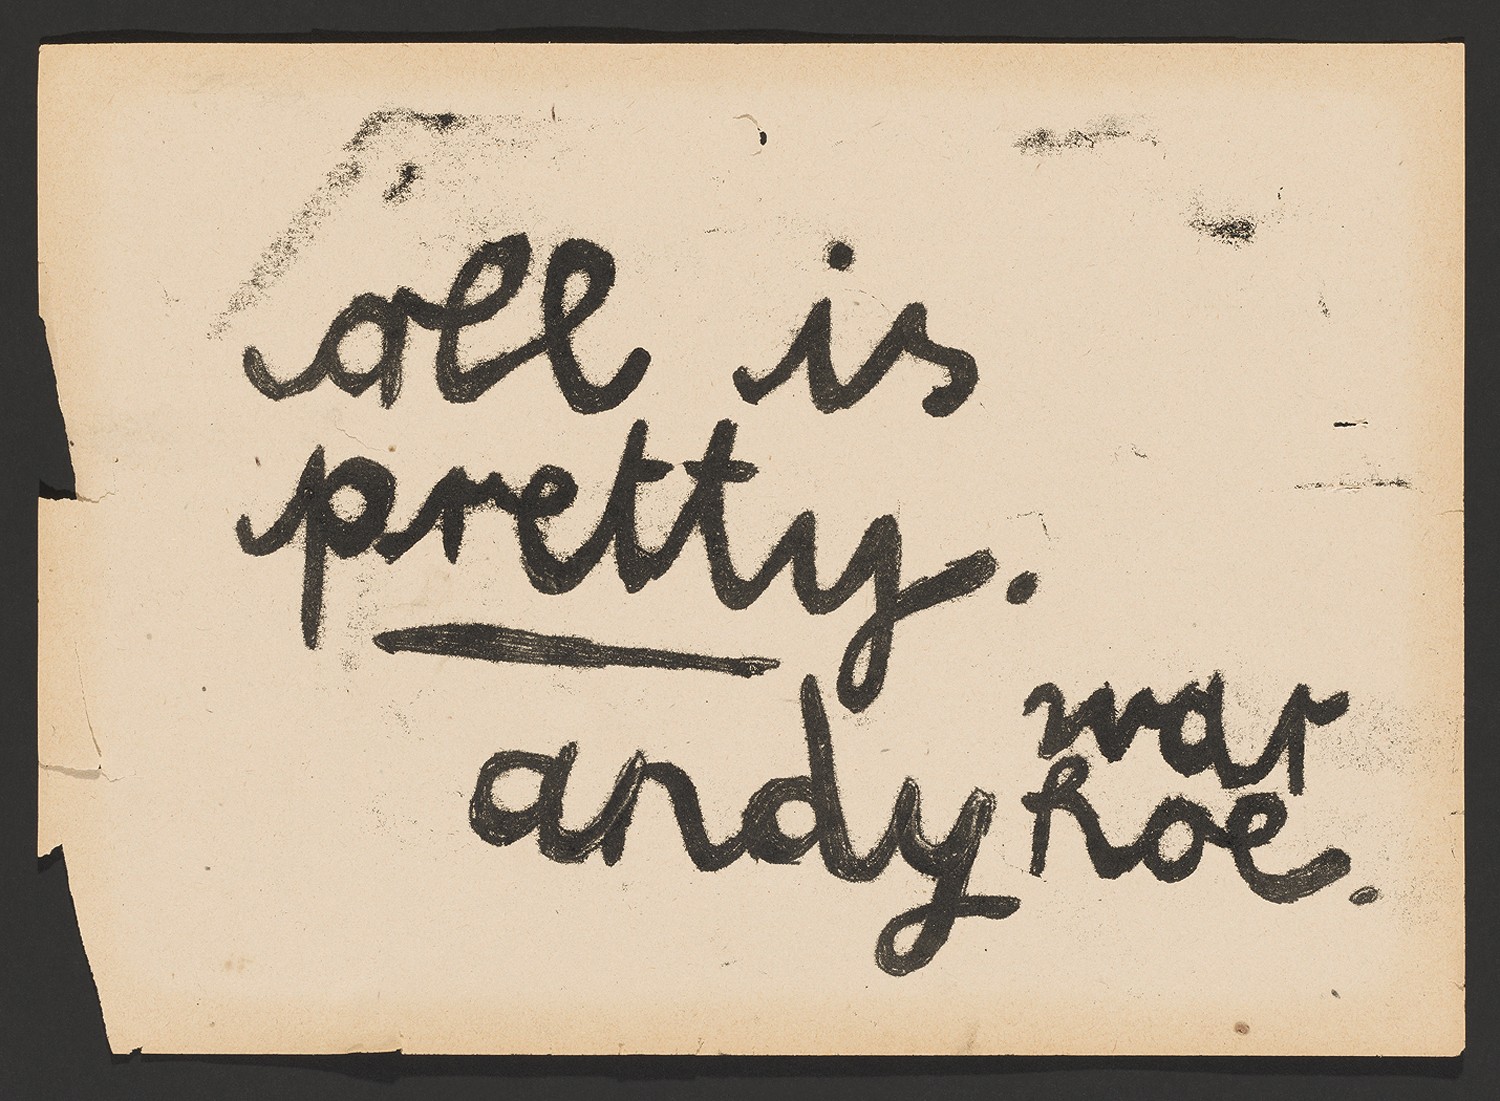 all is
pretty.
andy war
hol.